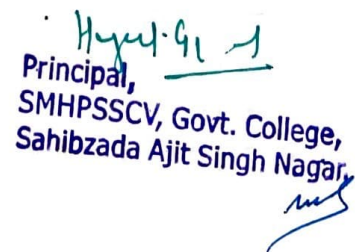 Principal,
SMHPSSCV, Govt. College,
Sahibzada Ajit Singh Nagar,